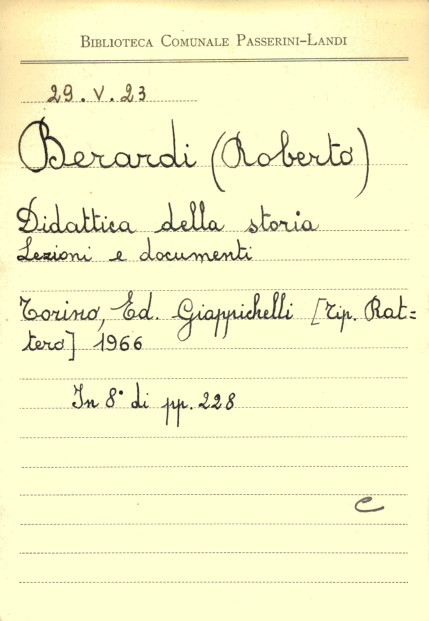 BIBLIOTECA COMUNALE PASSERINI-LANDI
29.V.23
Berardi (Roberto)
Didattica della storia
Lezioni e documenti
Torino, Ed. Giappichelli [Tip. Rat=
tero] 1966
In 8° di pp. 228
e